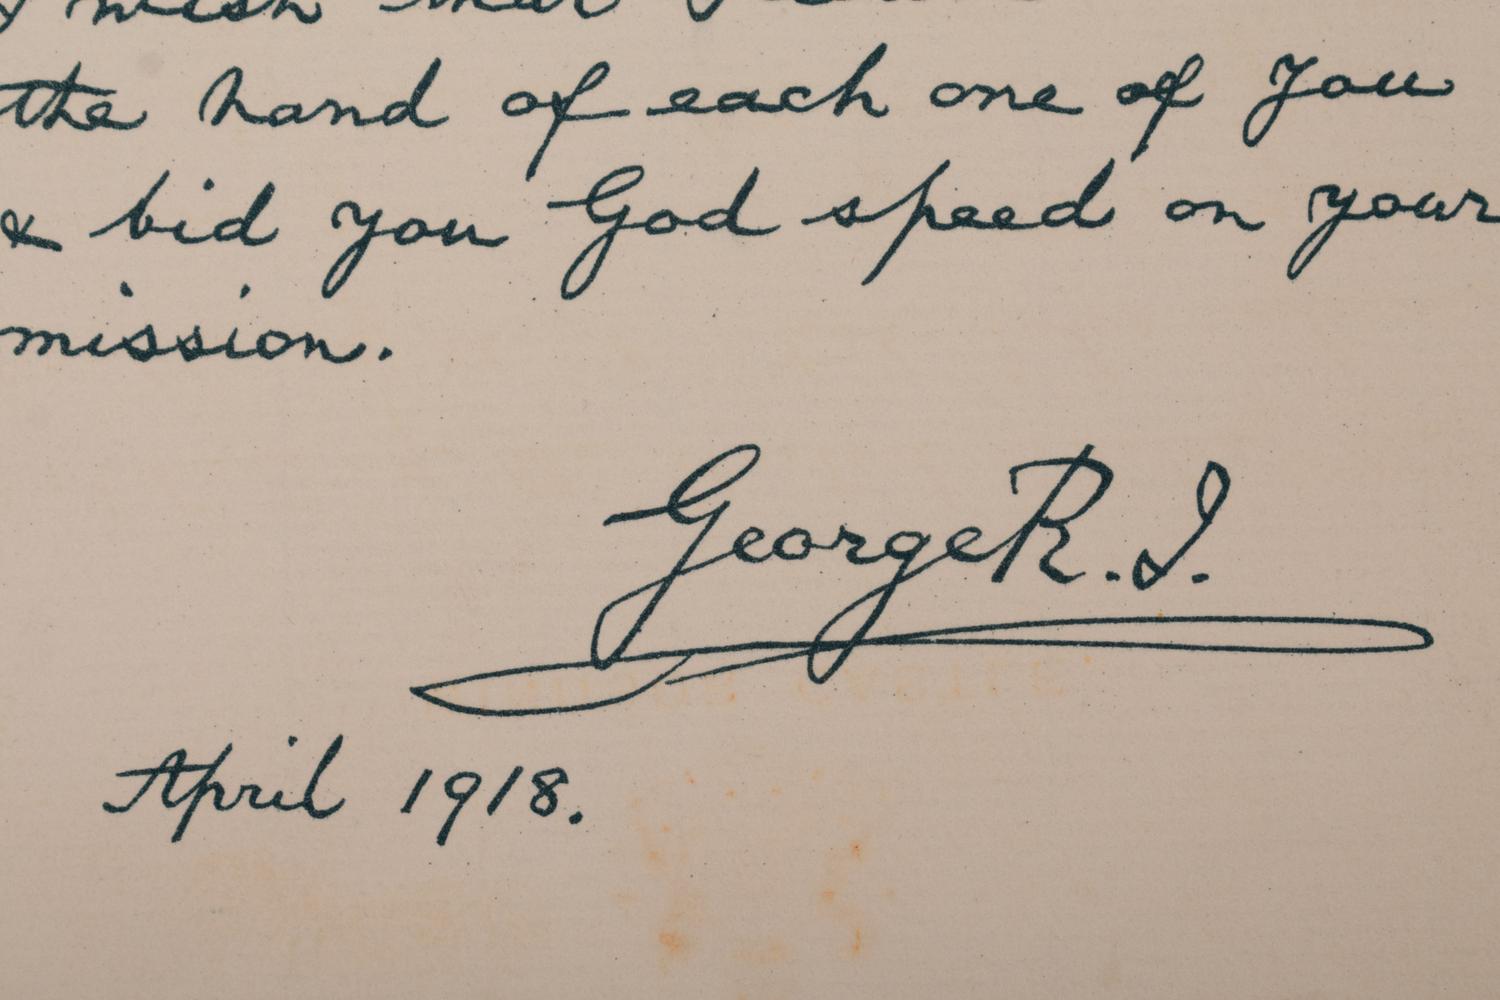 I wish that I could
the hand of each one of you
& bid you God speed on your
mission.
George R.I.
April 1918.